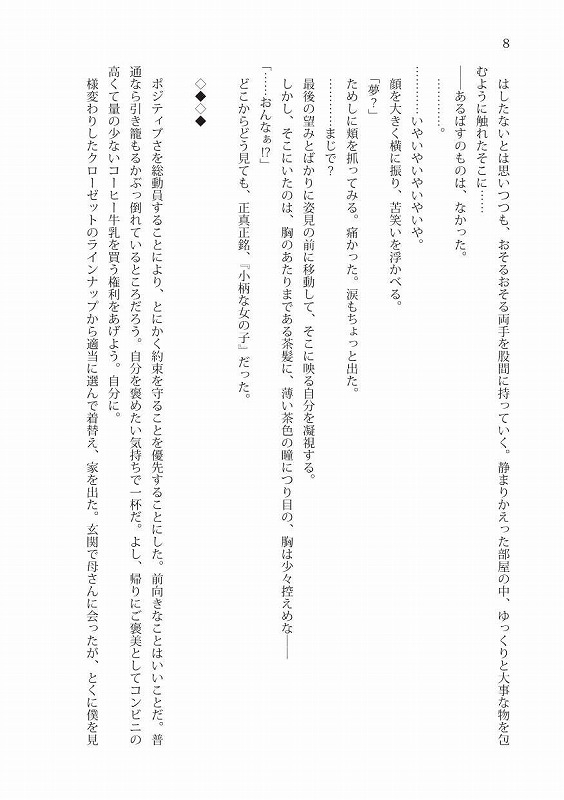 8
はしたないとは思いつつも、おそるおそる両手を股間に持っていく。静まりかえった部屋の中、ゆっくりと大事な物を包
むように触れたそこに……
――あるばずのものは、なかった。
…………。
…………いやいやいやいやいや。
顔を大きく横に振り、苦笑いを浮かべる。
「夢？」
ためしに頬を抓ってみる。痛かった。涙もちょっと出た。
…………まじで？
最後の望みとばかりに姿見の前に移動して、そこに映る自分を凝視する。
しかし、そこにいたのは、胸のあたりまである茶髪に、薄い茶色の瞳につり目の、胸は少々控えめな――
「……おんなぁ!?」
どこからどう見ても、正真正銘、『小柄な女の子』だった。
◇◆◇◆
ポジティブさを総動員することにより、とにかく約束を守ることを優先することにした。前向きなことはいいことだ。普
通なら引き籠もるかぶっ倒れているところだろう。自分を褒めたい気持ちで一杯だ。よし、帰りにご褒美としてコンビニの
高くて量の少ないコーヒー牛乳を買う権利をあげよう。自分に。
様変わりしたクローゼットのラインナップから適当に選んで着替え、家を出た。玄関で母さんに会ったが、とくに僕を見